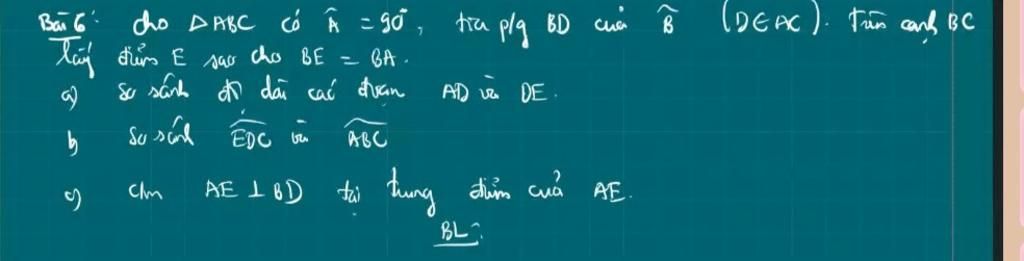 Bài 6: cho △ABC có Â = 90°, tia p/g BD của B̂ (D∈AC). Trên cạnh BC
lấy điểm E sao cho BE = BA.
a) So sánh độ dài các đoạn AD và DE.
b) So sánh \widehat{EDC} và \widehat{ABC}
c) Cm AE ⊥ BD tại trung điểm của AE.
BL: